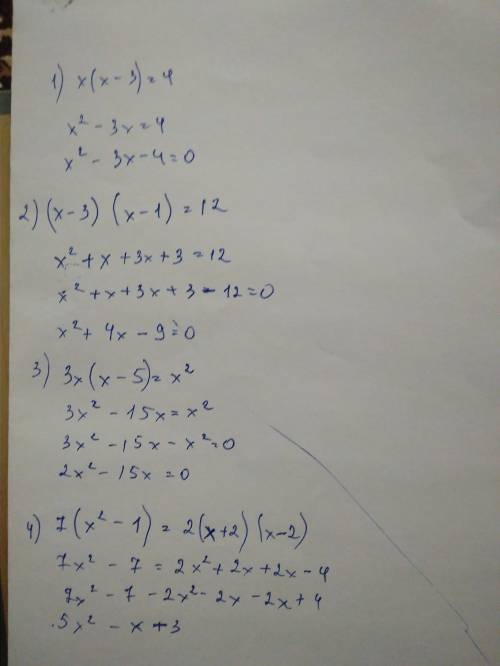 1) x(x-3)=4
x² - 3x = 4
x² - 3x - 4 = 0
2) (x-3) (x-1) = 12
x² + x + 3x + 3 = 12
x² + x + 3x + 3 - 12 = 0
x² + 4x - 9 = 0
3) 3x(x-5) = x²
3x² - 15x = x²
3x² - 15x - x² = 0
2x² - 15x = 0
4) 7(x² - 1) = 2(x+2) (x-2)
7x² - 7 = 2x² + 2x + 2x - 4
7x² - 7 - 2x² - 2x - 2x + 4
5x² - x + 3